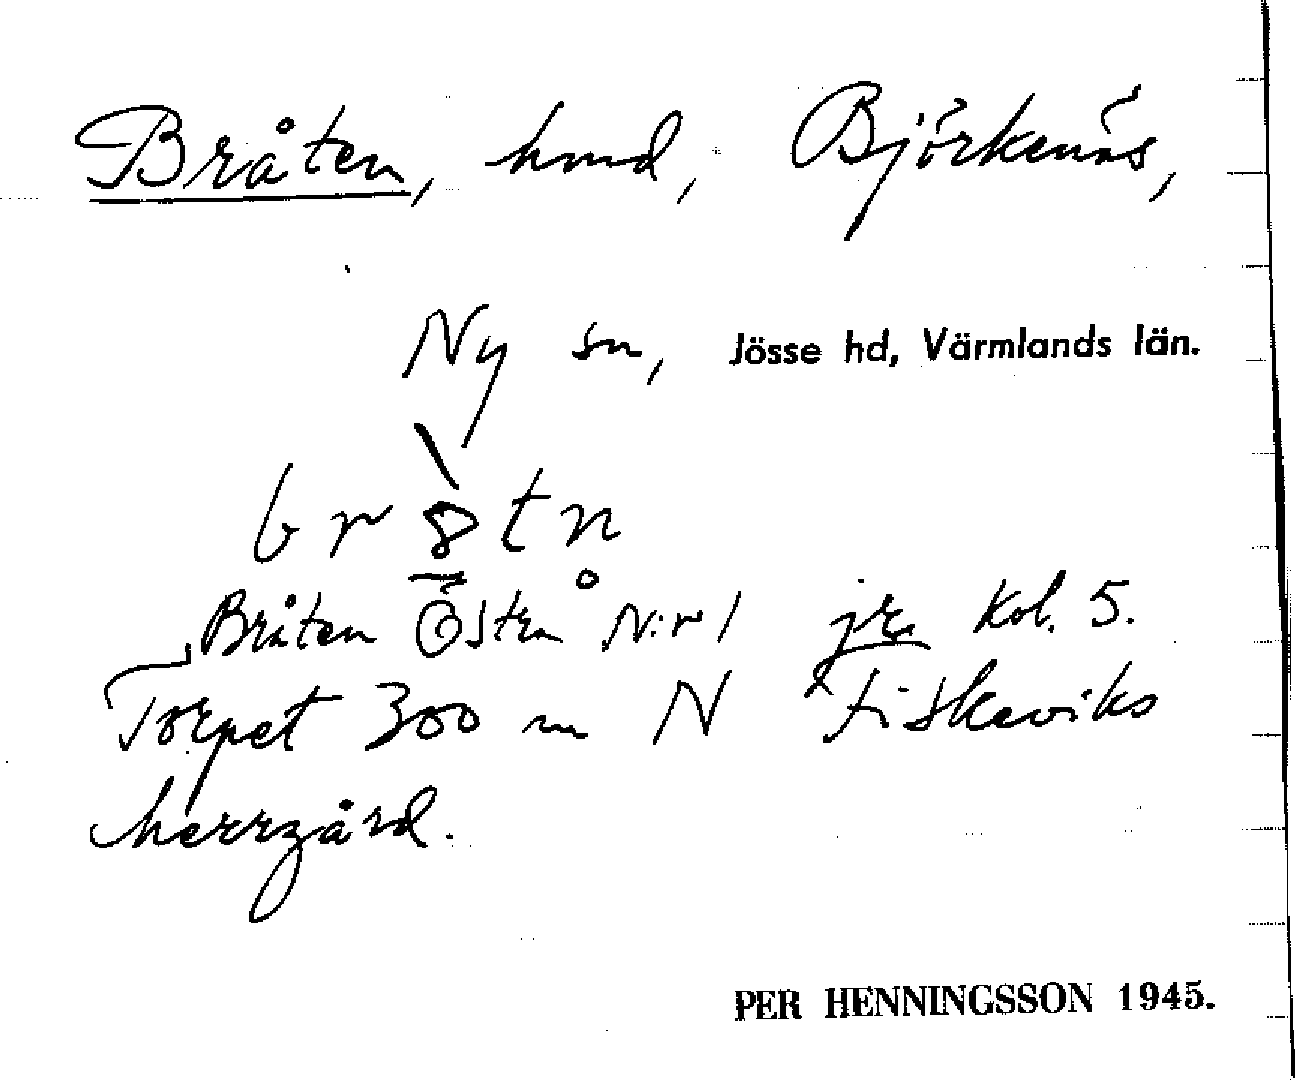 Bråten, hmd, Björkenäs,
Ny sn, Jösse hd, Värmlands län.
br8tn
Bråten Östra N:r 1 jr. kol. 5.
Torpet 300 m N Fiskeviks
herrgård.
PER HENNINGSSON 1945.